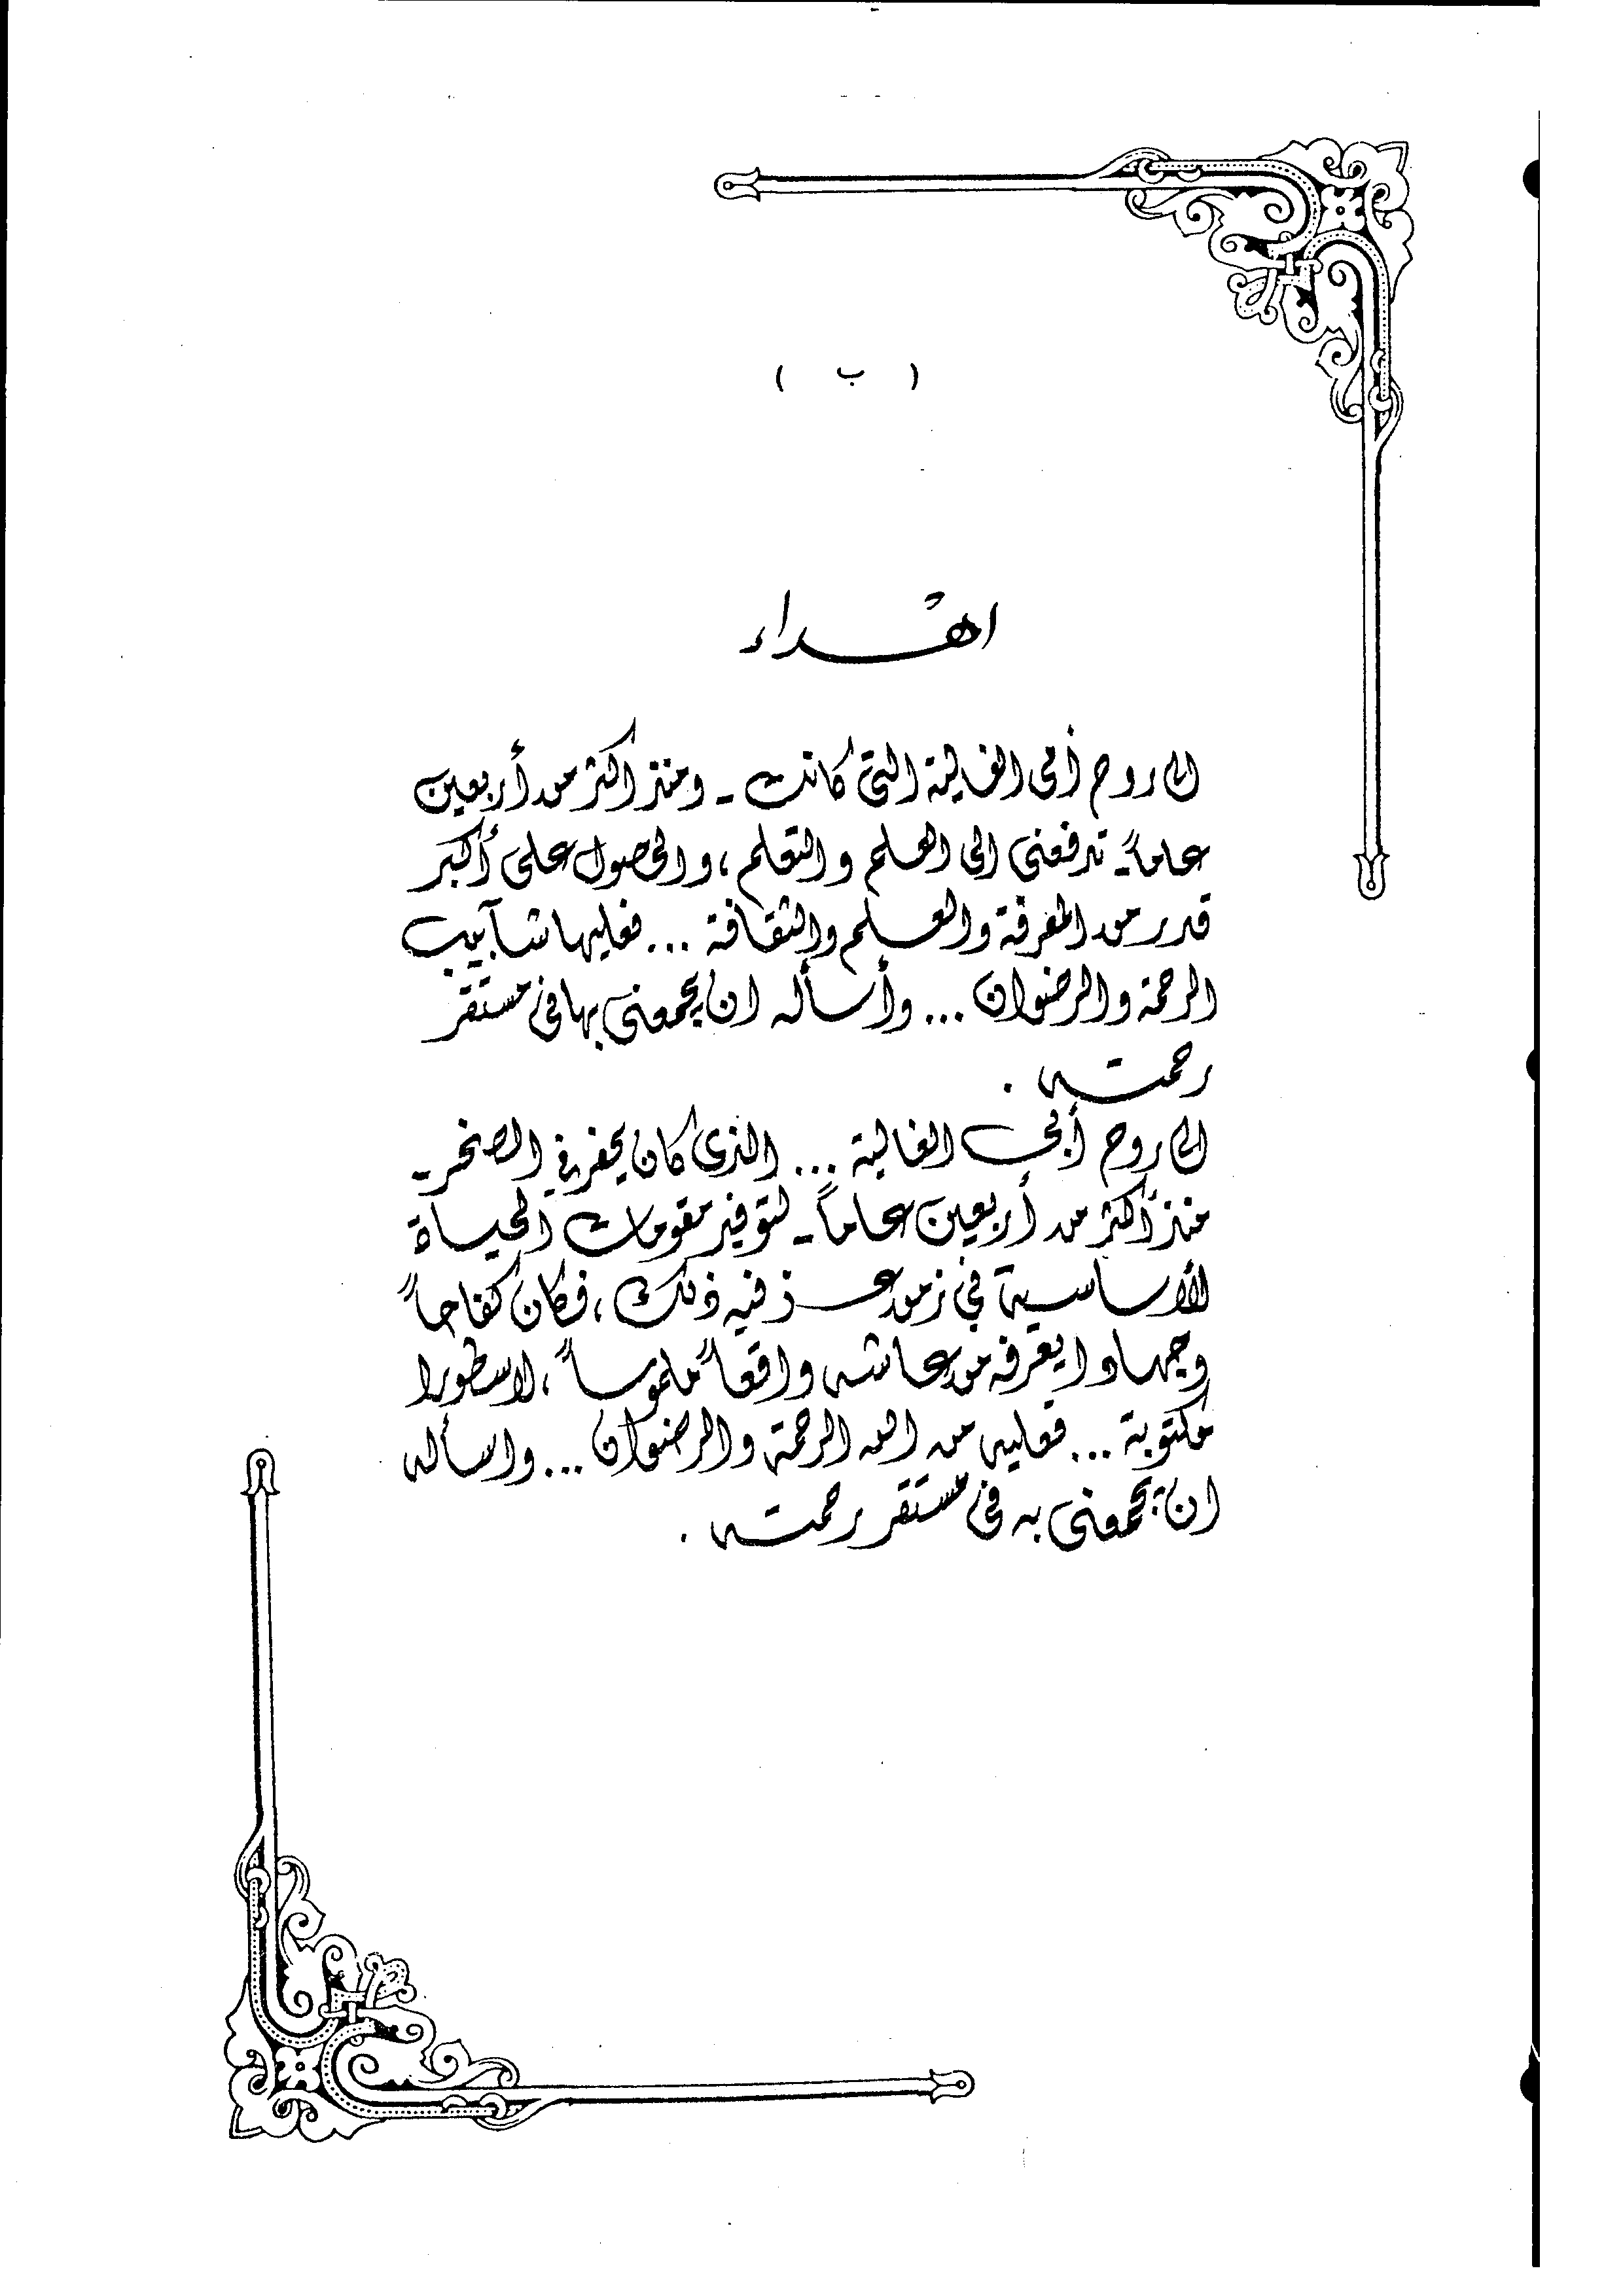 ( ب )
اهداء
الى روح أمى الغالية التى كانت - ومنذ اكثر من أربعين
عاماً - تدفعنى الى العلم والتعلم ، والحصول على أكبر
قدر من المعرفة والعلم والثقافة ... فعليها شآبيب
الرحمة والرضوان ... وأسأله ان يجمعنى بها فى مستقر
رحمته .
الى روح أبى الغالية ... الذى كان يحفر في الصخر -
منذ أكثر من أربعين عاماً - لتوفير مقومات الحياة
الأساسية في زمن عز فيه ذلك ، فكان كفاحاً
وجهادا يعرفه من عاشه واقعاً ملموساً ، لا سطورا
مكتوبة ... فعليه من الله الرحمة والرضوان ... واسأله
ان يجمعنى به فى مستقر رحمته .